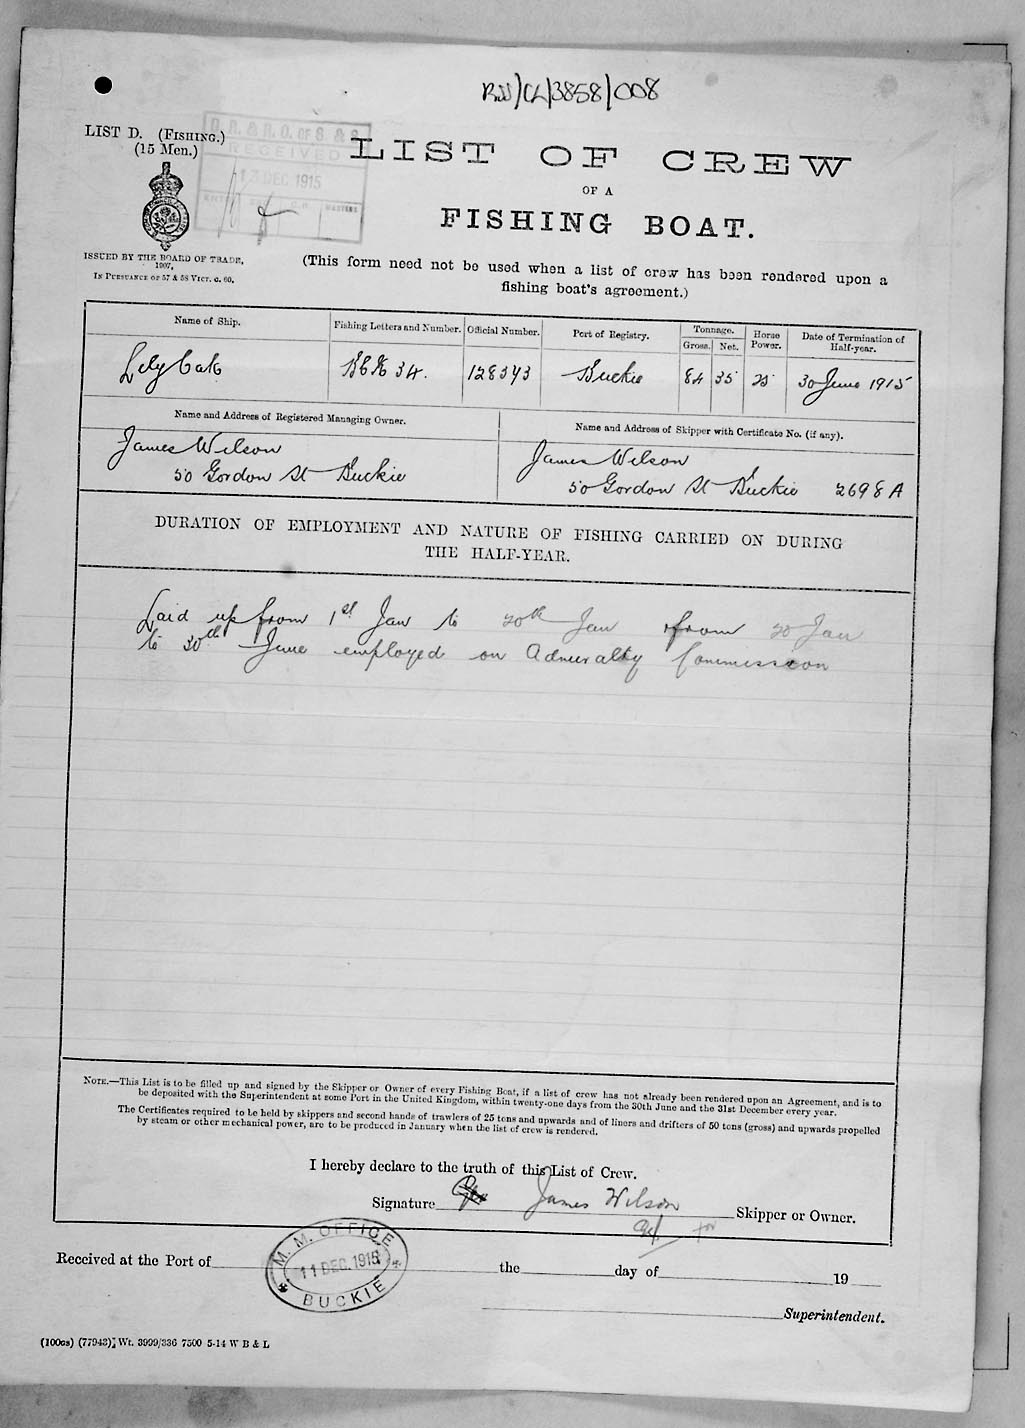 RSS/CL/3858/008
LIST D. (FISHING.)
(15 Men.)
R. & R. O. OF S. & S.
RECEIVED
13 DEC 1915
MASTERS
LIST OF CREW
OF A
FISHING BOAT.
ISSUED BY THE BOARD OF TRADE,
1907,
IN PURSUANCE OF 57 & 58 VICT. c. 60.
(This form need not be used when a list of crew has been rendered upon a
fishing boat's agreement.)
Name of Ship.
Fishing Letters and Number.
Official Number.
Port of Registry.
Tonnage.
Gross.
Net.
Horse Power.
Date of Termination of Half-year.
Lily Oak
BCK 34.
128343
Buckie
84
35
25
30 June 1915
Name and Address of Registered Managing Owner.
Name and Address of Skipper with Certificate No. (if any).
James Wilson
50 Gordon St Buckie
James Wilson
50 Gordon St Buckie 2698A
DURATION OF EMPLOYMENT AND NATURE OF FISHING CARRIED ON DURING
THE HALF-YEAR.
Laid up from 1st Jan to 20th Jan from 20 Jan
to 30th June employed on Admiralty Commission
NOTE.—This List is to be filled up and signed by the Skipper or Owner of every Fishing Boat, if a list of crew has not already been rendered upon an Agreement, and is to
be deposited with the Superintendent at some Port in the United Kingdom, within twenty-one days from the 30th June and the 31st December every year.
The Certificates required to be held by skippers and second hands of trawlers of 25 tons and upwards and of liners and drifters of 50 tons (gross) and upwards propelled
by steam or other mechanical power, are to be produced in January when the list of crew is rendered.
I hereby declare to the truth of this List of Crew.
Signature James Wilson Skipper or Owner.
Received at the Port of the day of 19
M. M. OFFICE
11 DEC. 1915
BUCKIE
Superintendent.
(100GS) (77943) Wt. 3999/336 7500 5-14 W B & L